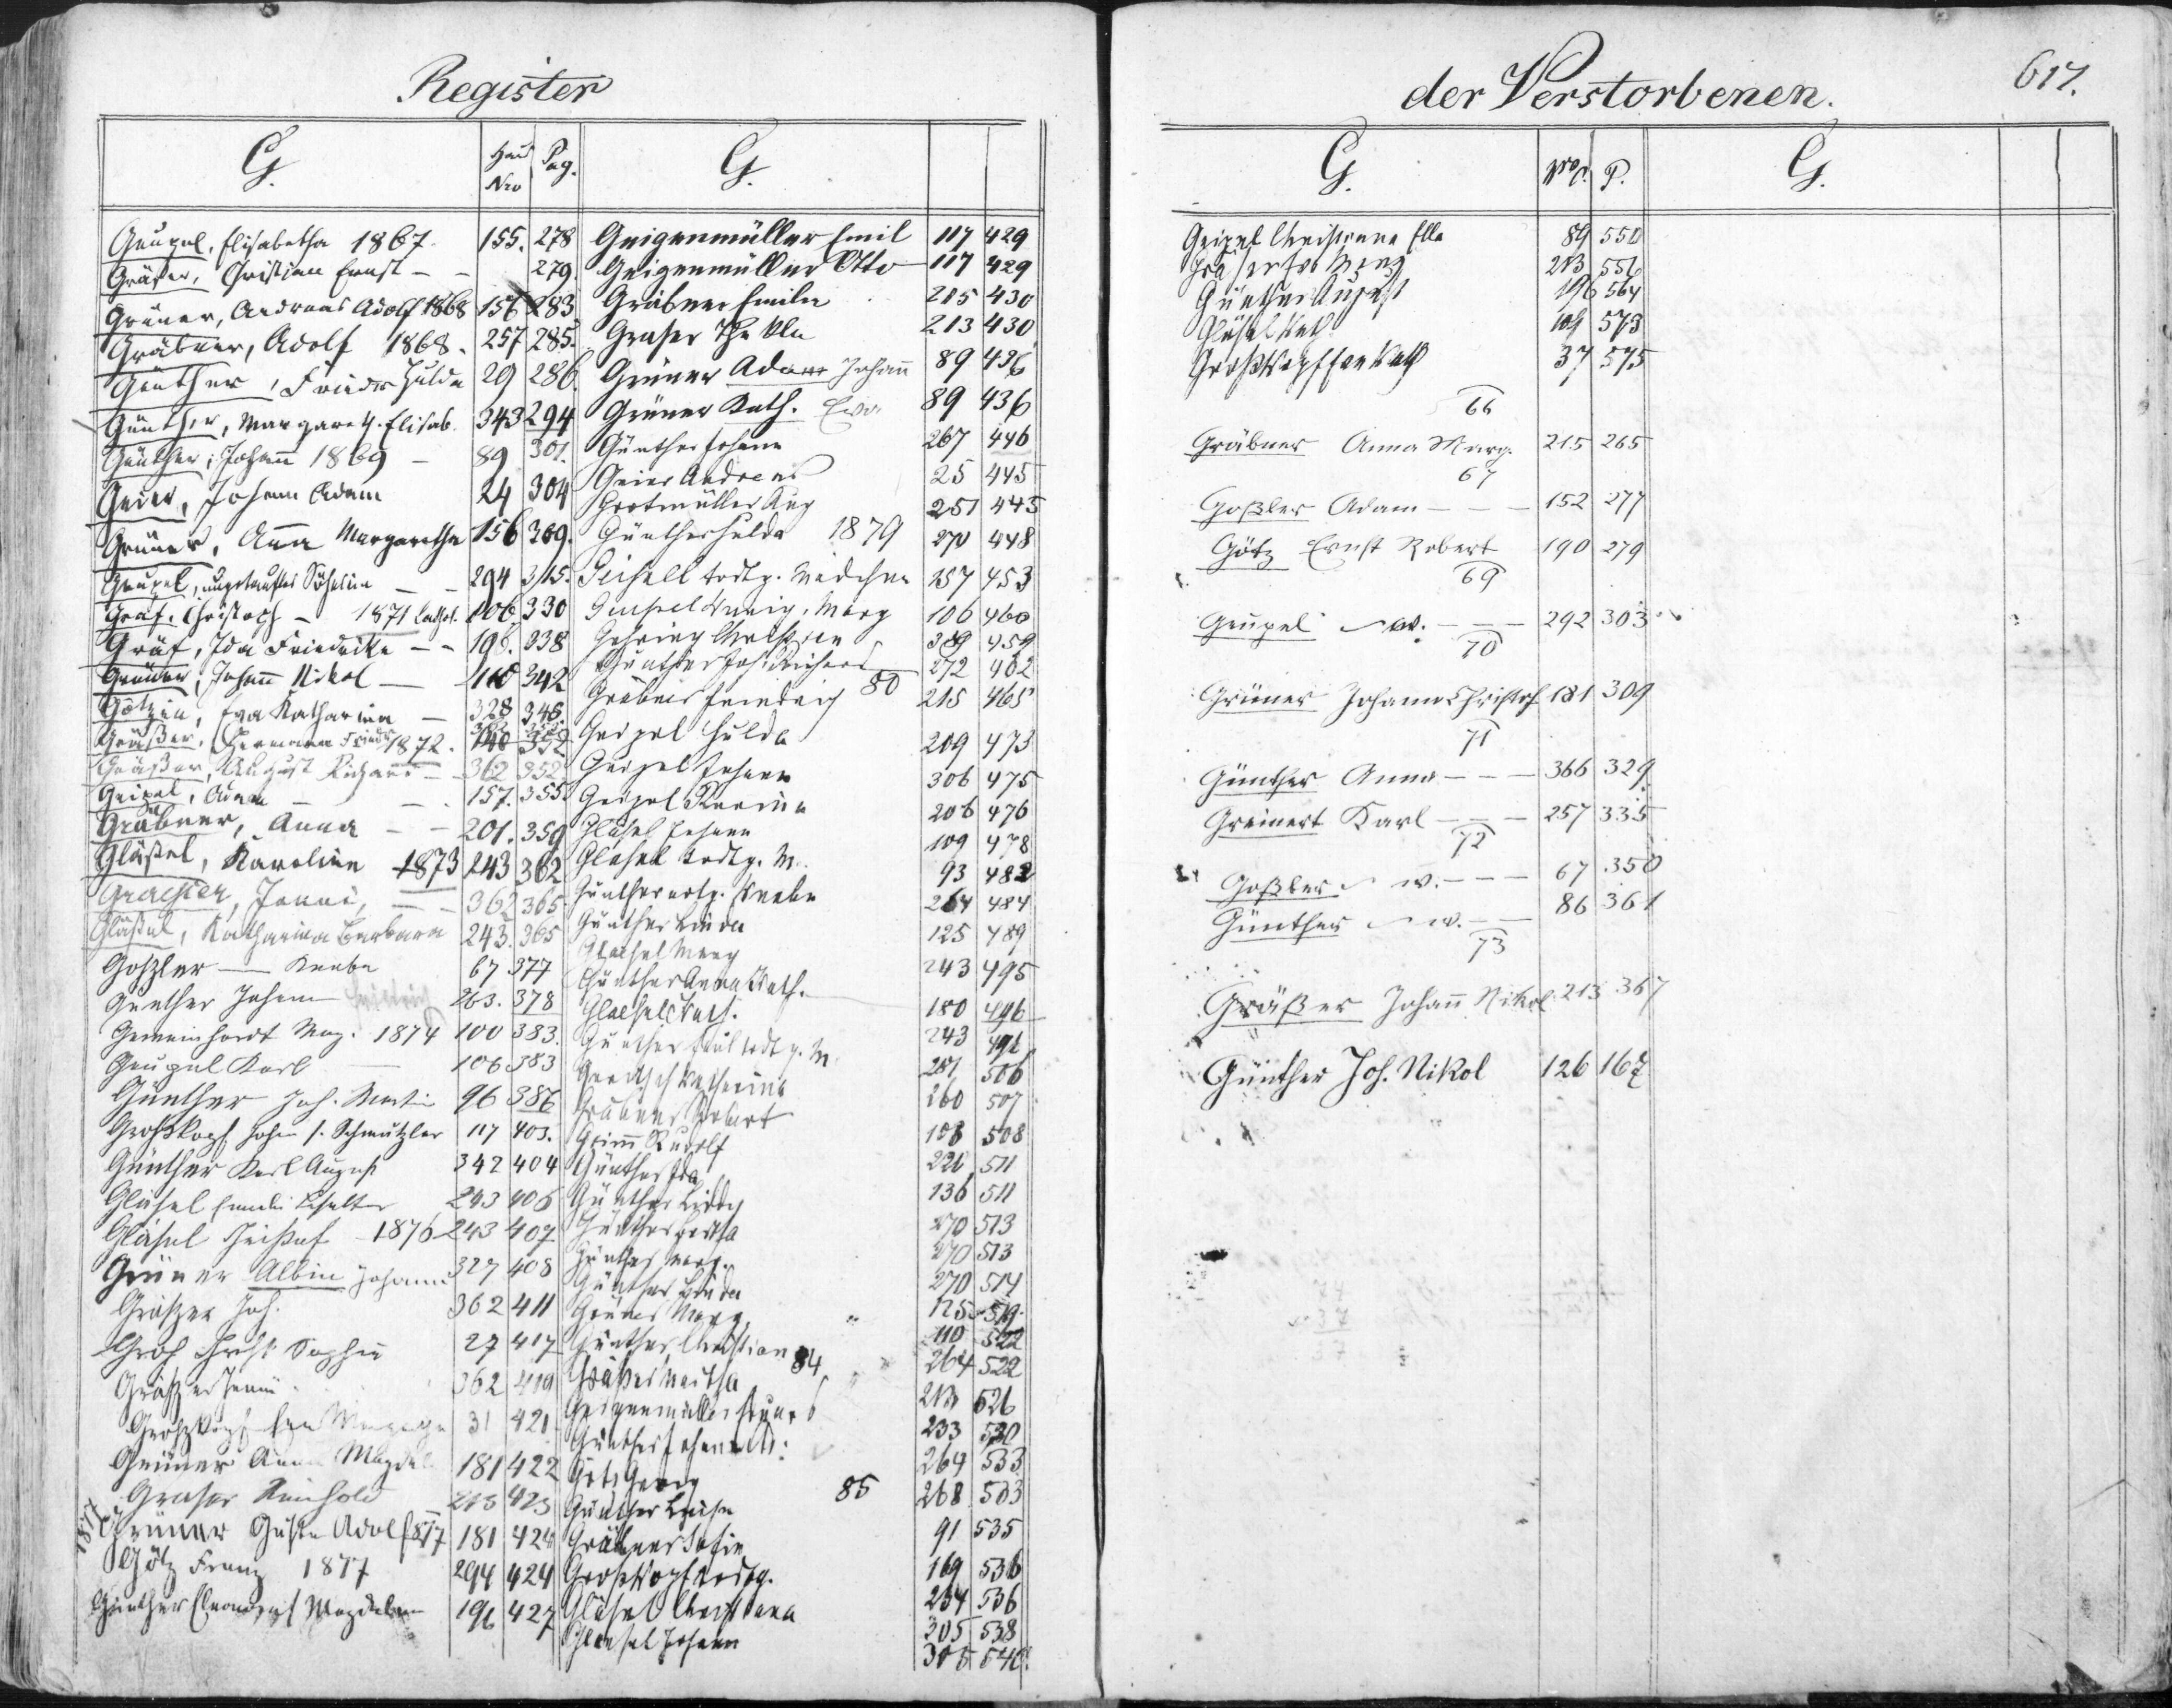 Register
G.
Haus Nro
Pag.
G.
Geupel, Elisabetha 1867. 155. 278
Gräser, Christian Ernst - - 279
Grüner, Andreas Adolf 1868 156 283
Gräbner, Adolf 1868. 257 285.
Günther, Friedr Hulda 29 286.
Günther, Margareth. Elisab. 343 294
Günther, Johann 1869 - 89 301.
Geier, Johann Adam 24 304
Grüner, Anna Margaretha 156 309.
Geupel, ungetauftes Söhnlein - - 294 315.
Graf, Christoph - 1871 kathol. 106. 330
Gräf, Ida Friedrike - - 196. 338
Grüner, Johann Nikol - 110 342
Götzin, Eva Katharina - 328 346.
Gräßer, Hermann Friedr 1872. 140 352
Gräßer, August Richard - 362 352
Geipel, Adam - - 157. 355
Gräbner, Anna - - 201. 359
Gläßel, Karoline 1873 243 362
Graesser, Jenni, - - 362 365
Gläßel, Katharina Barbara 243. 365
Goßler - Knabe 67 377
Günther Johann Heinrich 263. 378
Gemeinhardt Mag. 1874 100 383.
Geupel Karl - 106 383
Günther Joh. Martin 96 386
Großkopf Johann s. Schmutzler 117 403.
Günther Karl August 342 404
Gläsel 243 406
Gläsel Christof - 1876 243 407
Grüner Albin Johann 327 408
Gräßer Joh. 362 411
Groh Christ. Sophie 27 417
Gräßer Jenni 362 419
Großkopf 31 421
Grüner Anna Magdal. 181 422
Graser Reinhold 213 423
1877 Grüner Gustav Adolf 1877 181 424
Götz Franz 1877 294 424
Günther Magdalena 196 427
Geigenmüller Emil 117 429
Geigenmüller Otto 117 429
Gräbner Emilie 215 430
Graser Thekla 213 430
Grüner Adam Johann 89 436
Grüner Kath. Eva 89 436
Günther Johann 267 446
Geier Andreas 25 445
Grotmüller Aug 251 445
Günther Hulda 1879 270 448
Geipell todtg. Mädchen 257 453
Geupel Marg 106 460
Gehring Christian 389 459
Günther Joh. Richard 272 462
Gräbner Friedrich 80 215 465
Geipel Hulda 209 473
Geipel Johann 306 475
Geipel 206 476
Gläsel Johann 109 478
Gläsel todtg. M. 93 482
Günther notg. Knabe 264 484
Günther Linda 125 489
Glaesel Marg 243 495
Günther Anna Kath. 180 496
Glaesel Kath. 243 496
Günther todtg. M. 281 506
Katharina 260 507
Gräbner Robert 108 508
Grimm Rudolf 226 511
Günther Ida 136 511
Günther Liddy 270 513
Günther Bertha 270 513
Günther Marg. 270 514
Günther Linda 125 519
Grüner Marg. 110 522
Günther Christian 84 264 522
Gräßer Martha 213 526
Geigenmüller 233 530
Günther Johann 264 533
Götz Georg 85 268 533
Günther Luise 91 535
Gräbner Sofie 169 536
Großkopf todtg. 234 536
Gläsel Christiana 305 538
Glaesel Johann 305 540.
der Verstorbenen.
617.
G.
Nro.
P.
G.
Geipel Christiane Ella 89 550
213 556
Günther August 196 564
Gläsel Kath. 109 573
Großkopf 37 575
66
Gräbner Anna Marg. 215 265
67
Goßler Adam - - - 152 277
Götz Ernst Robert 190 279
69
Geupel w. - - - 292 303
70
Grüner Johann Christof 181 309
71
Günther Anna - - - 366 329
Greinert Karl - - - 257 335
72
Goßler w. - - - 67 350
Günther w. - - 86 361
73
Gräßer Johann Nikol 213 367
Günther Joh. Nikol 126 167